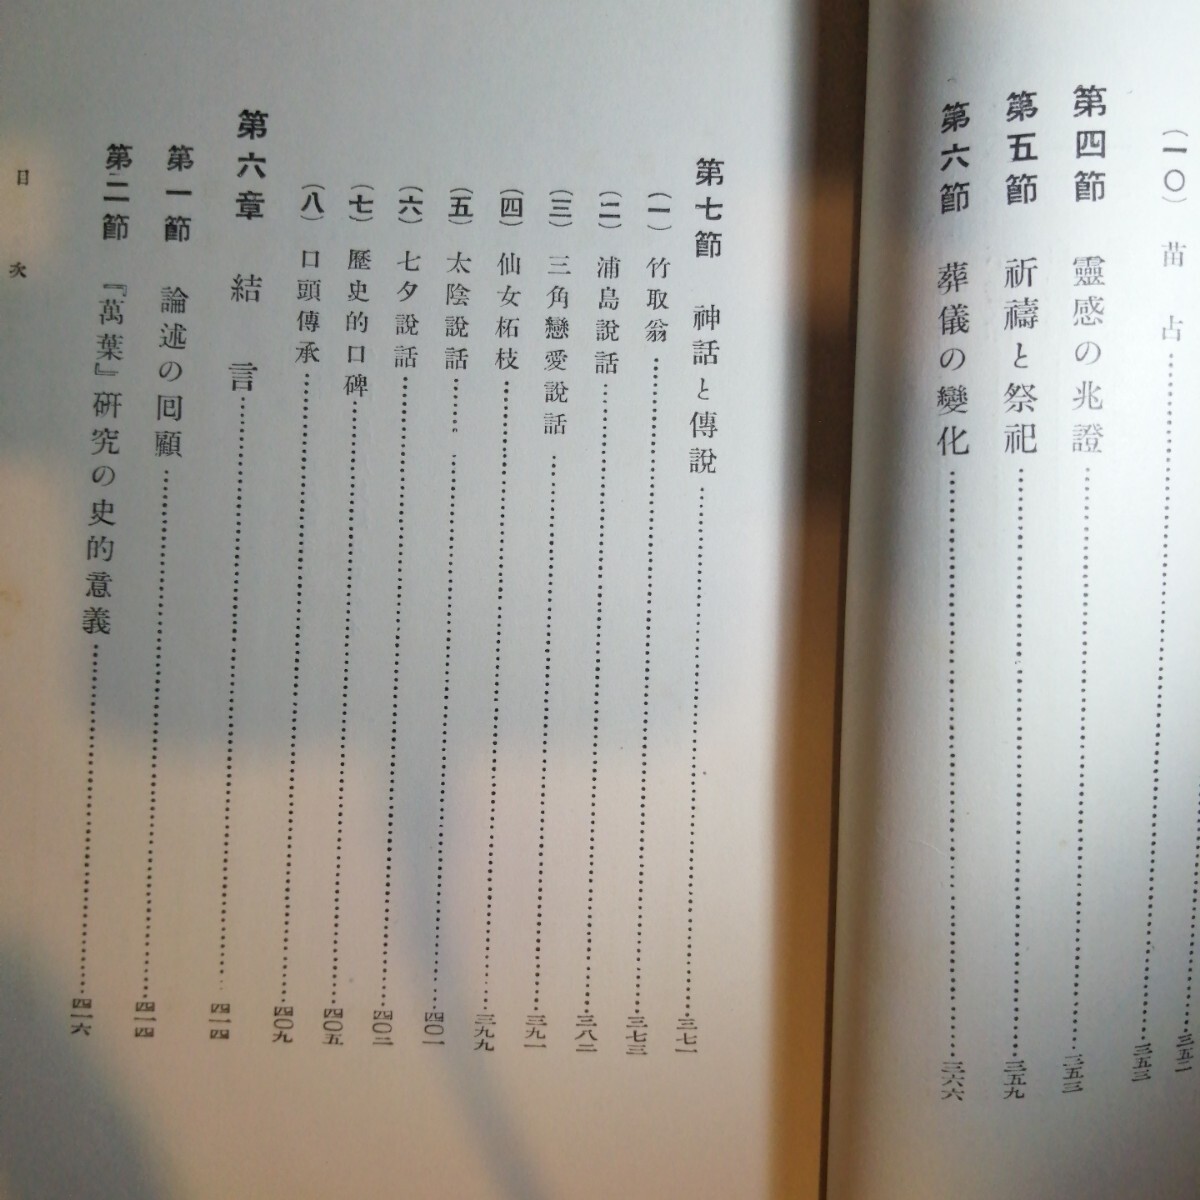 三五二
(一〇) 苗占……三五三
第四節 靈感の兆證……三五三
第五節 祈禱と祭祀……三五九
第六節 葬儀の變化……三六六
第七節 神話と傳說……三七一
(一) 竹取翁……三七三
(二) 浦島說話……三八二
(三) 三角戀愛說話……三九一
(四) 仙女柘枝……三九九
(五) 太陰說話……四〇一
(六) 七夕說話……四〇二
(七) 歷史的口碑……四〇五
(八) 口頭傳承……四〇九
第六章 結言……四一四
第一節 論述の囘顧……四一四
第二節 『萬葉』硏究の史的意義……四一六
目次